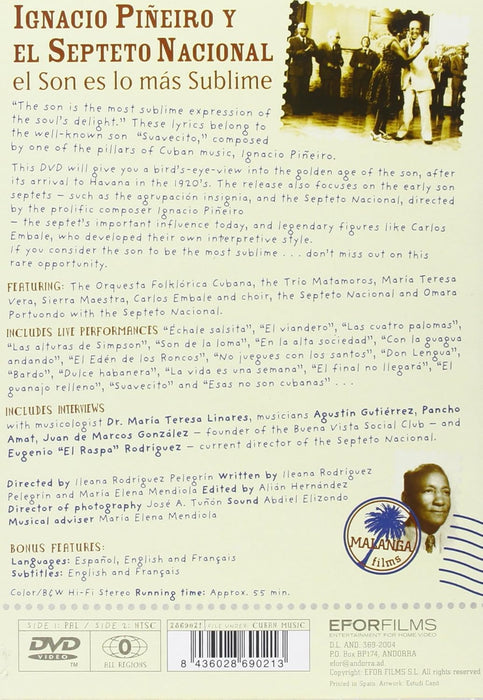 IGNACIO PIÑEIRO Y
EL SEPTETO NACIONAL
el Son es lo más Sublime
"The son is the most sublime expression of
the soul's delight." These lyrics belong to
the well-known son "Suavecito," composed
by one of the pillars of Cuban music, Ignacio Piñeiro.
This DVD will give you a bird's-eye-view into the golden age of the son, after
its arrival to Havana in the 1920's. The release also focuses on the early son
septets – such as the agrupación insignia, and the Septeto Nacional, directed
by the prolific composer Ignacio Piñeiro
– the septet's important influence today, and legendary figures like Carlos
Embale, who developed their own interpretive style.
If you consider the son to be the most sublime . . . don't miss out on this
rare opportunity.
FEATURING: The Orquesta Folklórica Cubana, the Trío Matamoros, María Teresa
Vera, Sierra Maestra, Carlos Embale and choir, the Septeto Nacional and Omara
Portuondo with the Septeto Nacional.
INCLUDES LIVE PERFORMANCES "Échale salsita", "El viandero", "Las cuatro palomas",
"Las alturas de Simpson", "Son de la loma", "En la alta sociedad", "Con la guagua
andando", "El Edén de los Roncos", "No juegues con los santos", "Don Lengua",
"Bardo", "Dulce habanera", "La vida es una semana", "El final no llegará", "El
guanajo relleno", "Suavecito" and "Esas no son cubanas" . . .
INCLUDES INTERVIEWS
with musicologist Dr. María Teresa Linares, musicians Agustín Gutiérrez, Pancho
Amat, Juan de Marcos González – founder of the Buena Vista Social Club – and
Eugenio "El Raspa" Rodríguez – current director of the Septeto Nacional.
Directed by Ileana Rodríguez Pelegrín Written by Ileana Rodríguez
Pelegrín and María Elena Mendiola Edited by Alián Hernández
Director of photography José A. Tuñón Sound Abdiel Elizondo
Musical adviser María Elena Mendiola
MALANGA
films
BONUS FEATURES:
Languages: Español, English and Français
Subtitles: English and Français
Color/B&W Hi-Fi Stereo Running time: Approx. 55 min.
SIDE 1: PAL / SIDE 2: NTSC
DVD
VIDEO
0
ALL REGIONS
2869021
FILE UNDER: CUBAN MUSIC
8 436028 690213
EFORFILMS
ENTERTAINMENT FOR HOME VIDEO
D.L. AND. 368-2004
P.O. Box BP174, ANDORRA
efor@andorra.ad
Copyright: EFOR FILMS S.L. All rights reserved.
Printed in Spain. Artwork: Estudi Canó